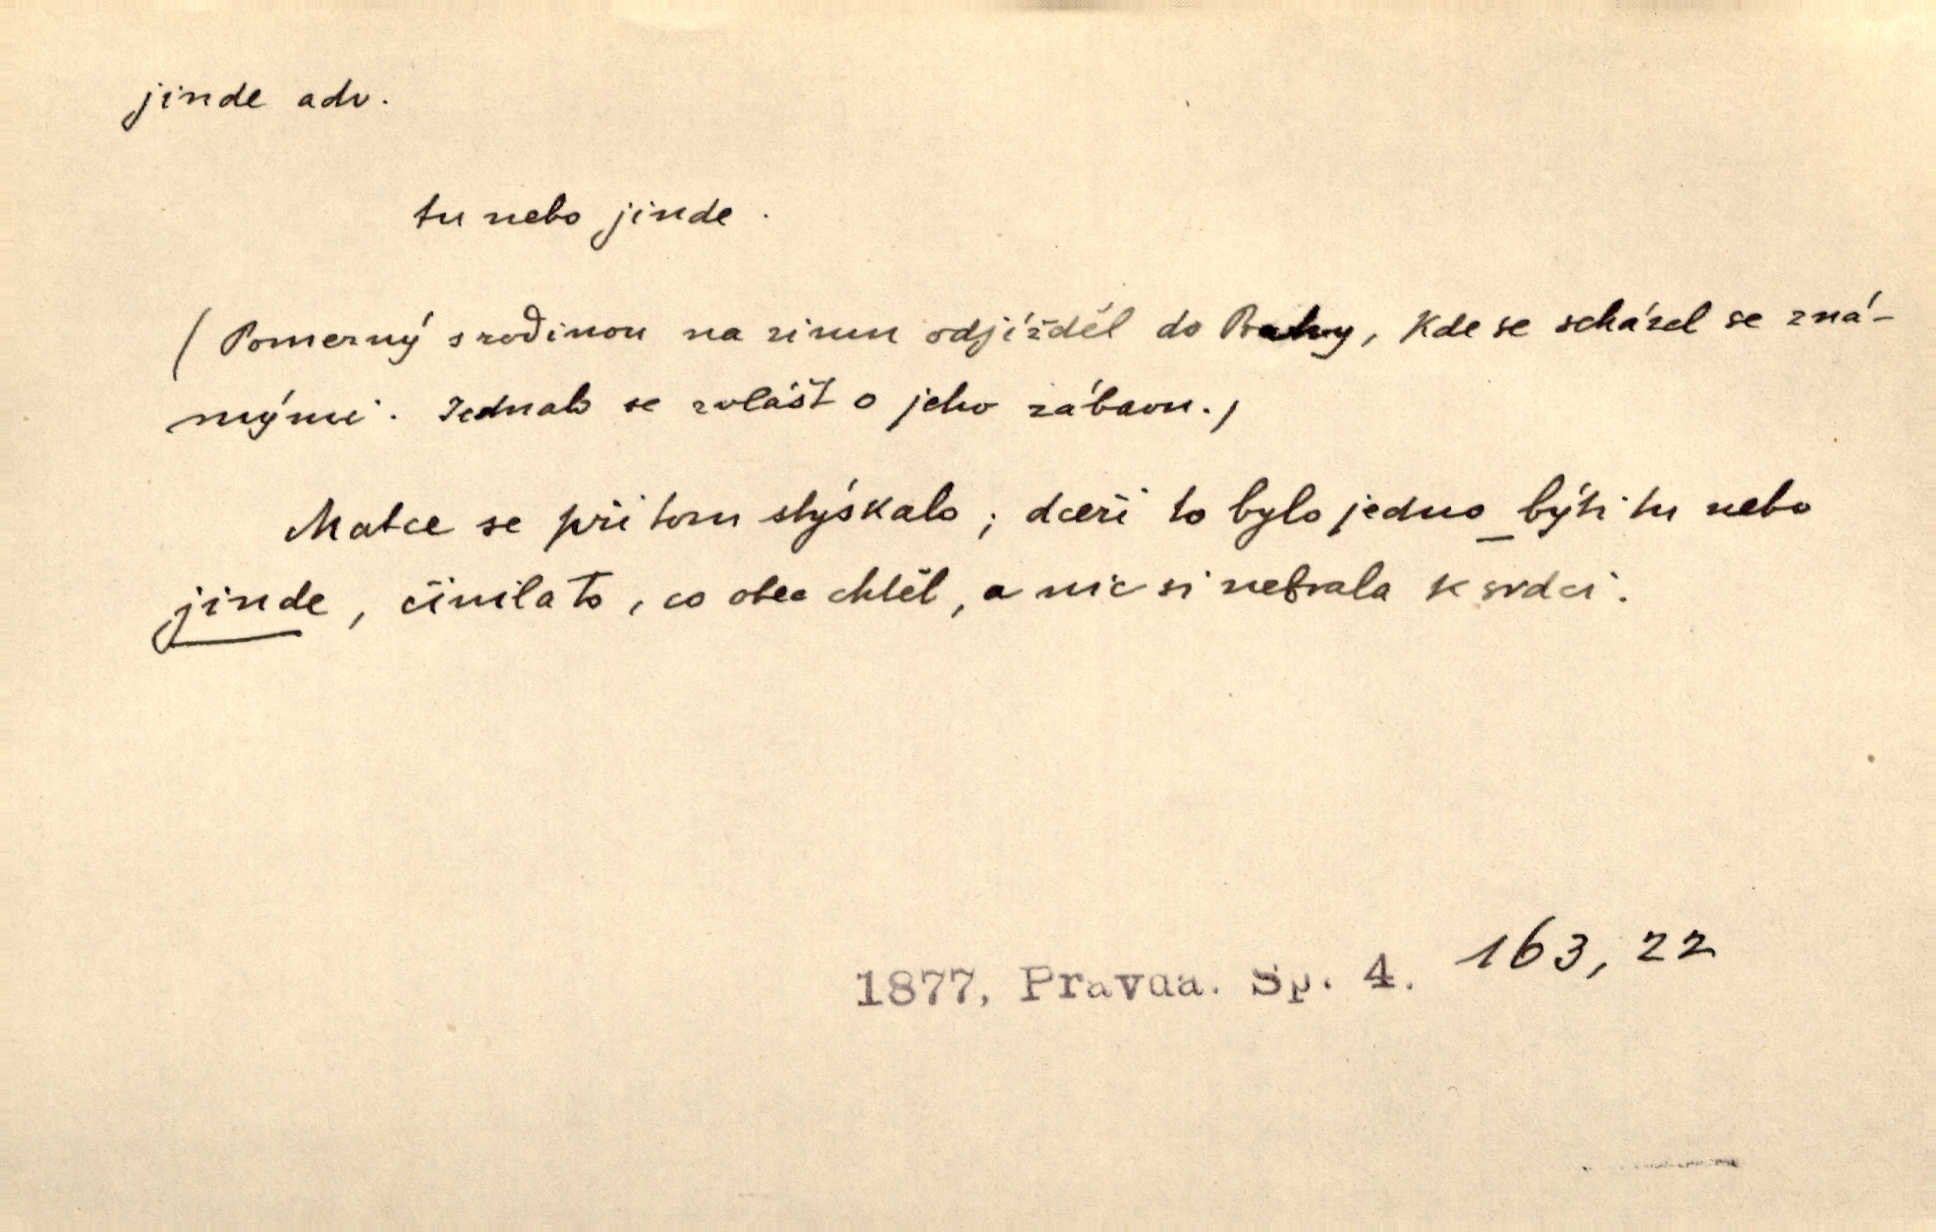 jinde adv.
tu nebo jinde.
(Pomerný s rodinou na zimu odjížděl do Prahy, kde se scházel se zná-
mými. Jednalo se zvlášt o jeho zábavu.)
Matce se při tom stýskalo; dceři to bylo jedno býti tu nebo
jinde, činila to, co otec chtěl, a nic si nebrala k srdci.
1877, Pravda. Sp. 4. 163, 22